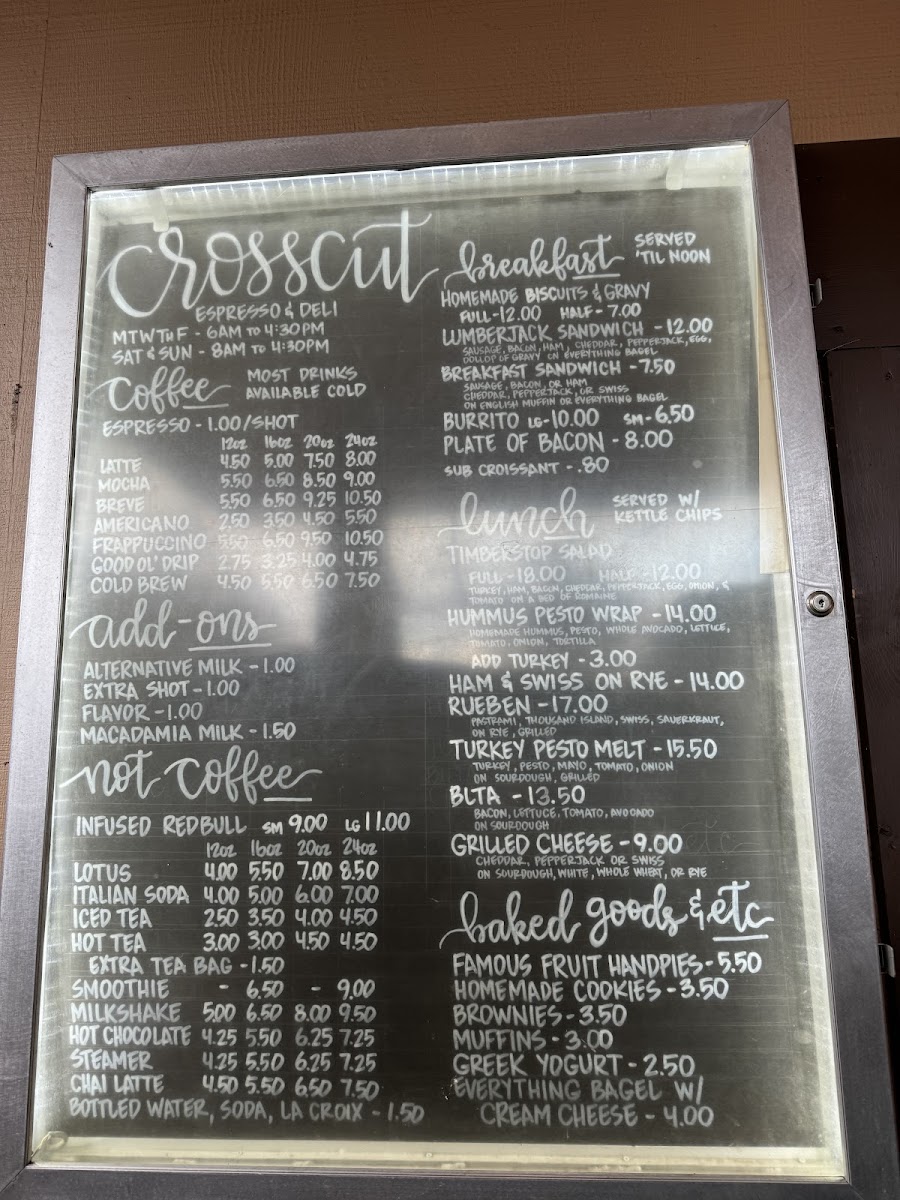 crosscut
ESPRESSO & DELI
MTWThF - 6AM TO 4:30PM
SAT & SUN - 8AM TO 4:30PM
coffee
MOST DRINKS
AVAILABLE COLD
ESPRESSO - 1.00/SHOT
12oz 16oz 20oz 24oz
LATTE 4.50 5.00 7.50 8.00
MOCHA 5.50 6.50 8.50 9.00
BREVE 5.50 6.50 9.25 10.50
AMERICANO 2.50 3.50 4.50 5.50
FRAPPUCCINO 5.50 6.50 9.50 10.50
GOOD OL' DRIP 2.75 3.25 4.00 4.75
COLD BREW 4.50 5.50 6.50 7.50
add-ons
ALTERNATIVE MILK - 1.00
EXTRA SHOT - 1.00
FLAVOR - 1.00
MACADAMIA MILK - 1.50
not coffee
INFUSED REDBULL SM 9.00 LG 11.00
12oz 16oz 20oz 24oz
LOTUS 4.00 5.50 7.00 8.50
ITALIAN SODA 4.00 5.00 6.00 7.00
ICED TEA 2.50 3.50 4.00 4.50
HOT TEA 3.00 3.00 4.50 4.50
EXTRA TEA BAG - 1.50
SMOOTHIE - 6.50 - 9.00
MILKSHAKE 5.00 6.50 8.00 9.50
HOT CHOCOLATE 4.25 5.50 6.25 7.25
STEAMER 4.25 5.50 6.25 7.25
CHAI LATTE 4.50 5.50 6.50 7.50
BOTTLED WATER, SODA, LA CROIX - 1.50
breakfast
SERVED
'TIL NOON
HOMEMADE BISCUITS & GRAVY
FULL - 12.00 HALF - 7.00
LUMBERJACK SANDWICH - 12.00
SAUSAGE, BACON, HAM, CHEDDAR, PEPPERJACK, EGG,
DOLLOP OF GRAVY ON EVERYTHING BAGEL
BREAKFAST SANDWICH - 7.50
SAUSAGE, BACON, OR HAM
CHEDDAR, PEPPERJACK, OR SWISS
ON ENGLISH MUFFIN OR EVERYTHING BAGEL
BURRITO LG - 10.00 SM - 6.50
PLATE OF BACON - 8.00
SUB CROISSANT - .80
lunch
SERVED W/
KETTLE CHIPS
TIMBERSTOP SALAD
FULL - 18.00 HALF - 12.00
TURKEY, HAM, BACON, CHEDDAR, PEPPERJACK, EGG, ONION, &
TOMATO ON A BED OF ROMAINE
HUMMUS PESTO WRAP - 14.00
HOMEMADE HUMMUS, PESTO, WHOLE AVOCADO, LETTUCE,
TOMATO, ONION, TORTILLA
ADD TURKEY - 3.00
HAM & SWISS ON RYE - 14.00
RUEBEN - 17.00
PASTRAMI, THOUSAND ISLAND, SWISS, SAUERKRAUT,
ON RYE, GRILLED
TURKEY PESTO MELT - 15.50
TURKEY, PESTO, MAYO, TOMATO, ONION
ON SOURDOUGH, GRILLED
BLTA - 13.50
BACON, LETTUCE, TOMATO, AVOCADO
ON SOURDOUGH
GRILLED CHEESE - 9.00
CHEDDAR, PEPPERJACK OR SWISS
ON SOURDOUGH, WHITE, WHOLE WHEAT, OR RYE
baked goods & etc
FAMOUS FRUIT HANDPIES - 5.50
HOMEMADE COOKIES - 3.50
BROWNIES - 3.50
MUFFINS - 3.00
GREEK YOGURT - 2.50
EVERYTHING BAGEL W/
CREAM CHEESE - 4.00